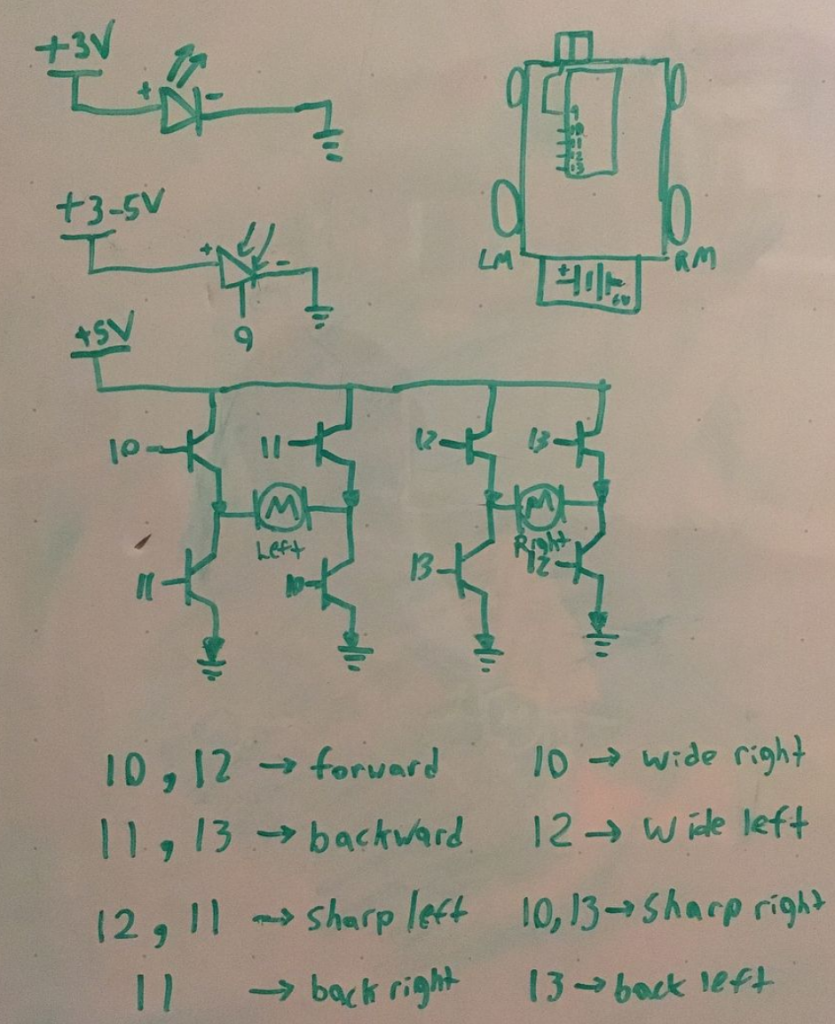 +3V
+ -
9
10
11
12
13
LM RM
+ - 6V
+3-5V
+ -
9
+5V
10 11 12 13
M M
Left Right
11 10 13 12
10, 12 → forward 10 → wide right
11, 13 → backward 12 → wide left
12, 11 → sharp left 10,13 → sharp right
11 → back right 13 → back left